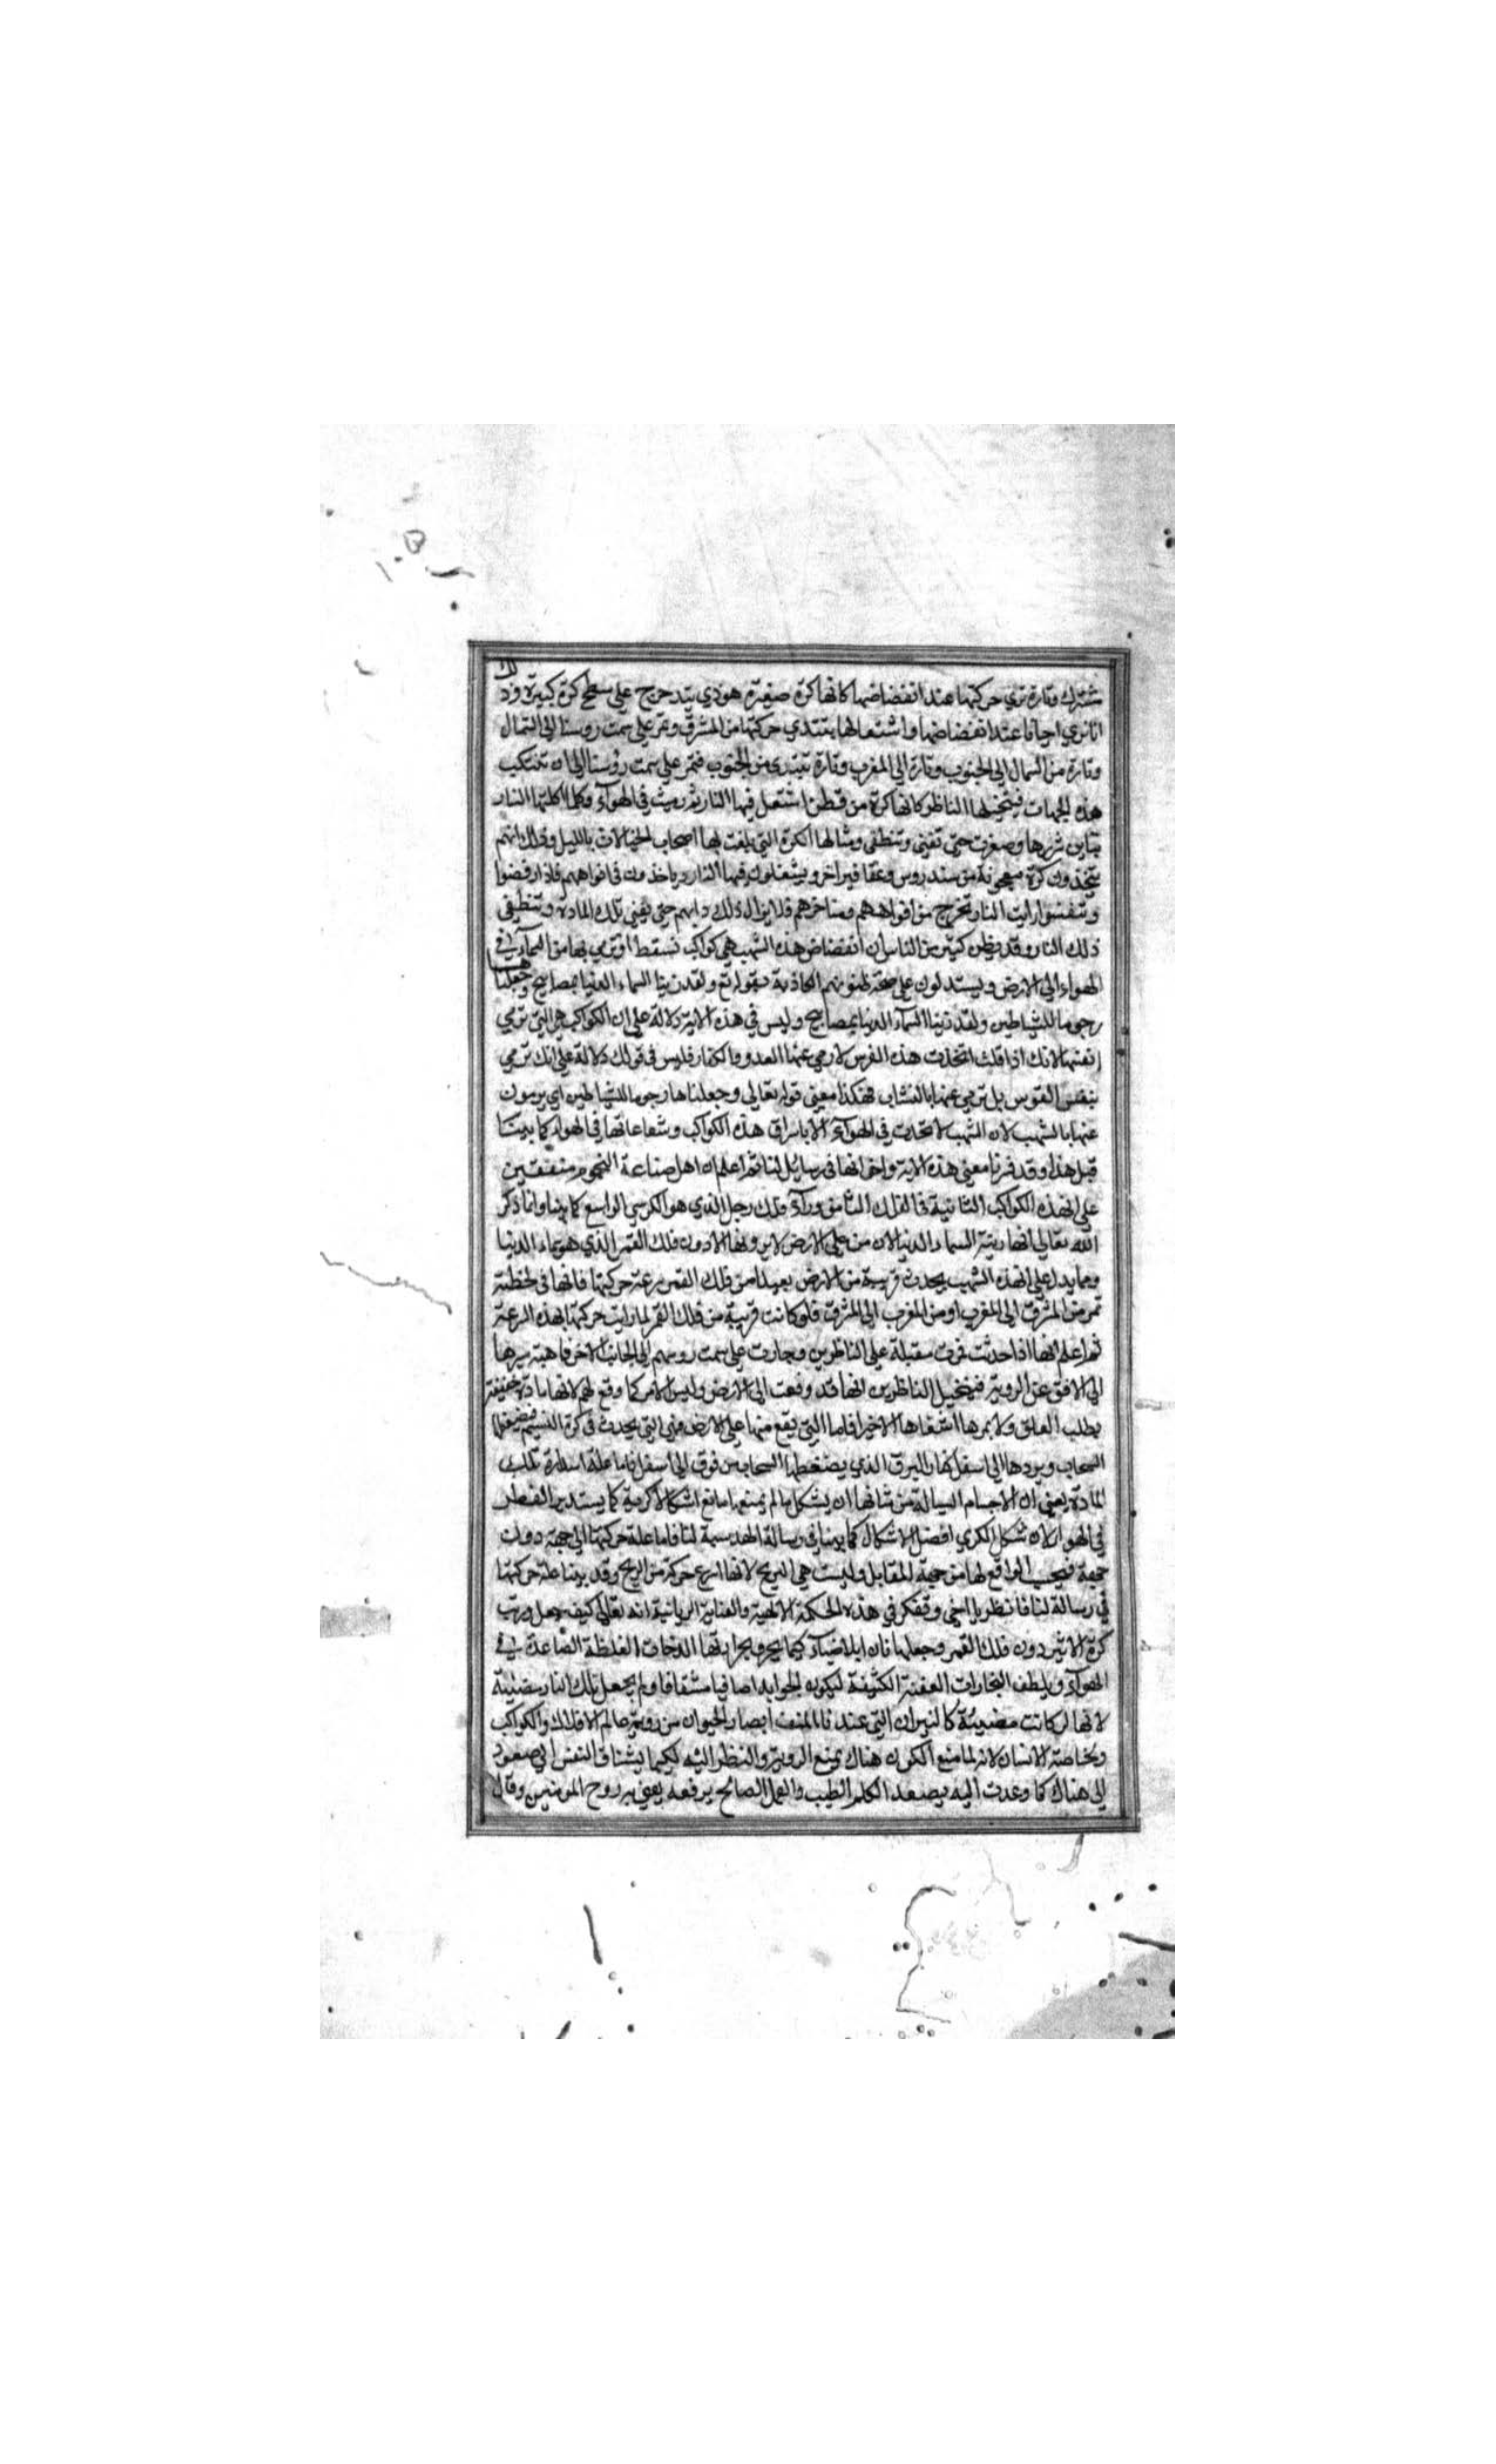 شترك وتارة تري حركتها عند انفضاضها كانها كرة صغيرة هوذي يتدحرج علي سطح كرة كبيرة وذلك
انا نري احيانا عند انفضاضها واشتعالها يبتدي حركتها من المشرق وتمر علي سمت روسنا الي الشمال
وتارة من الشمال الي الجنوب وتارة الي المغرب وتارة تبتدي من الجنوب فتمر علي سمت روسنا الي ان تتنكب
هذه الجهات فيتخيلها الناظر كانها كرة من قطن اشتعل فيها النار ثم رميت في الهوآء وكلما اكلتها النار
تباين شررها وصغرت حتي تفني وتنطفي ومثالها الكرة التي يلعب بها اصحاب الخيالات بالليل وذلك انهم
يتخذون كرة معجونة من سندروس وعقاقير اخر ويشعلون فيها النار وياخذون في افواههم فاذا رفضوا
وتنفسوا رايت النار تخرج من افواههم ومناخرهم فلا يزال ذلك دابهم حتي يفني تلك المادة وتنطفي
ذلك النار وقد يظن كثير من الناس ان انفضاض هذه الشهب هي كواكب تسقط او ترمي بها من السمآء في
الهواء الي الارض ويستدلون علي صحة ظنونهم الكاذبة بقوله تع ولقد زينا السماء الدنيا بمصابيح وجعلناها
رجوما للشياطين ولقد زينا السمآء الدنيا بمصابيح وليس في هذه الاية دلالة علي ان الكواكب هي التي ترمي
انفسها لانك اذا قلت اتخذت هذه القوس لارمي عنها العدو والكفار فليس في قولك دلالة علي انك ترمي
بنفس القوس بل ترمي عنها بالنشاب فهكذا معني قوله تعالي وجعلناها رجوما للشياطين اي يرمون
عنها بالشهب لان الشهب لا تحدث في الهوآء الا باشراق هذه الكواكب وشعاعاتها في الهواء كما بينا
قبل هذا وقد فسرنا معني هذه الاية واخواتها في رسايل لنا ثم اعلم ان اهل صناعة النجوم متفقين
علي ان هذه الكواكب الثابتة في الفلك الثامن ورآء فلك زحل الذي هو الكرسي الواسع كما بينا وانما ذكر
الله تعالي انها زينة السماء الدنيا لان من علي الارض لا يرونها الا دون فلك القمر الذي هو سماء الدنيا
ومما يدل علي ان هذه الشهب يحدث قريبة من الارض بعيدا من فلك القمر سرعة حركتها فانها في لحظة
تمر من المشرق الي المغرب او من المغرب الي المشرق فلو كانت قريبة من فلك القمر لما رايت حركتها بهذه السرعة
ثم اعلم انها اذا حدثت فمرت مقبلة علي الناظرين وجازت علي سمت روسهم الي الجانب الاخر ذاهبة سيرها
الي الافق عن الروية فيتخيل الناظرين انها قد وقعت الي الارض وليس الامر كما وقع لهم لانها مادة خفيفة
يطلب العلو ولا يمرها استقاها الاخير فاما التي يقع منها علي الارض فهي التي يحدث في كرة النسيم فيضغطها
السحاب ويردها الي اسفل كنار البرق الذي يضغطها السحاب من فوق الي اسفل فاما علة استدارة تلك
المادة يعني ان الاجسام السيالة من شانها ان يشكل ما لم يمنعها مانع اشكالا كرية كما يستدير القطر
في الهواء لان شكل الكري افضل الاشكال كما بينا في رسالة الهندسة لنا فاما علة حركتها الي جهة دون
جهة فبحسب الدافع لها من جهة المقابل وليست هي الريح لانها اسرع حركة من الريح وقد بينا علة حركتها
في رسالة لنا فانظر يا اخي وتفكر في هذه الحكمة الالهية والعناية الربانية انه تعالي كيف جعل ورتب
كرة الاثير دون فلك القمر وجعلها نارا بلا ضيآء كيما يحرق بحرارتها الدخانات الغليظة الصاعدة في
الهوآء ويلطف البخارات العفنة الكثيفة ليكون الجو ابدا صافيا مشفافا ولم يجعل تلك النار مضيئة
لانها لو كانت مضيئة كالنيران التي عندنا لمنعت ابصار الحيوان من روية عالم الافلاك والكواكب
وبخاصة الانسان لانه لما منع الكون هناك يمنع الروية والنظر اليه لكيما يشتاق النفس الي صعود
الي هناك كما وعدت اليه يصعد الكلم الطيب والعمل الصالح يرفعه يعني به روح المومنين وقال